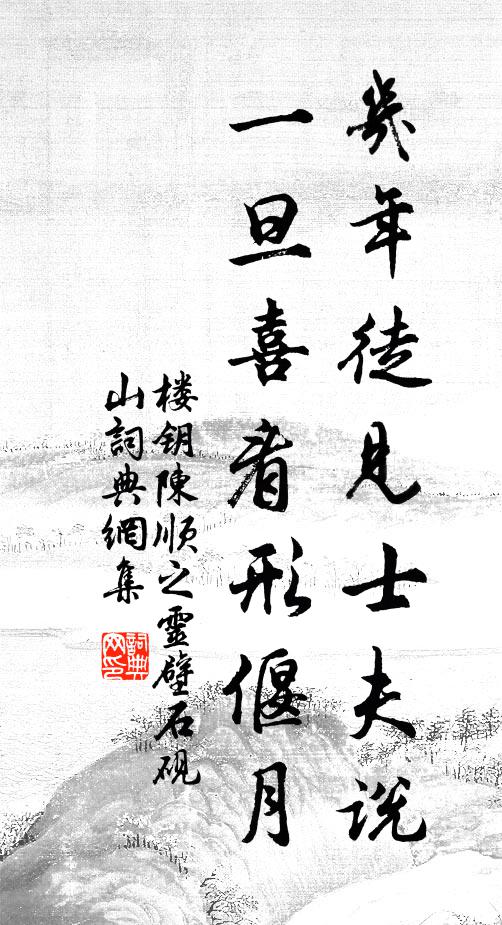 幾年徒見士夫說
一旦喜看形偃月
楼钥陳順之靈壁石硯
山詞典網集
詞典
网印